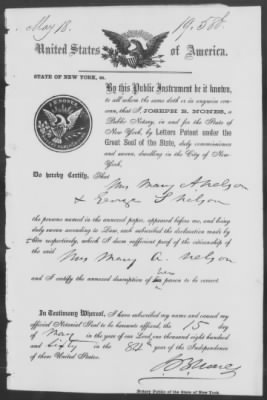 May 18.
19,580.
United States of America.
STATE OF NEW YORK, ss.
By this Public Instrument be it known,
to all whom the same doth or in anywise con-
cern, that I JOSEPH B. NONES, a
Public Notary, in and for the State of
New York, by Letters Patent under the
Great Seal of the State, duly commissioned
and sworn, dwelling in the City of New-
York.
J B NONES
Do hereby Certify, That
Mrs Mary A Nelson
& George S Nelson
the persons named in the annexed paper, appeared before me, and being
duly sworn according to Law, each subscribed the declaration made by
them respectively, which I deem sufficient proof of the citizenship of
the said
Mrs Mary A. Nelson
and I certify the annexed description of her person to be correct
In Testimony Whereof, I have subscribed my name and caused my
official Notarial Seal to be hereunto affixed, the 15 day
of May in the year of our Lord, one thousand eight hundred
and Sixty in the 84th year of the Independence
of these United States.
J B Nones
Notary Public of the State of New York.